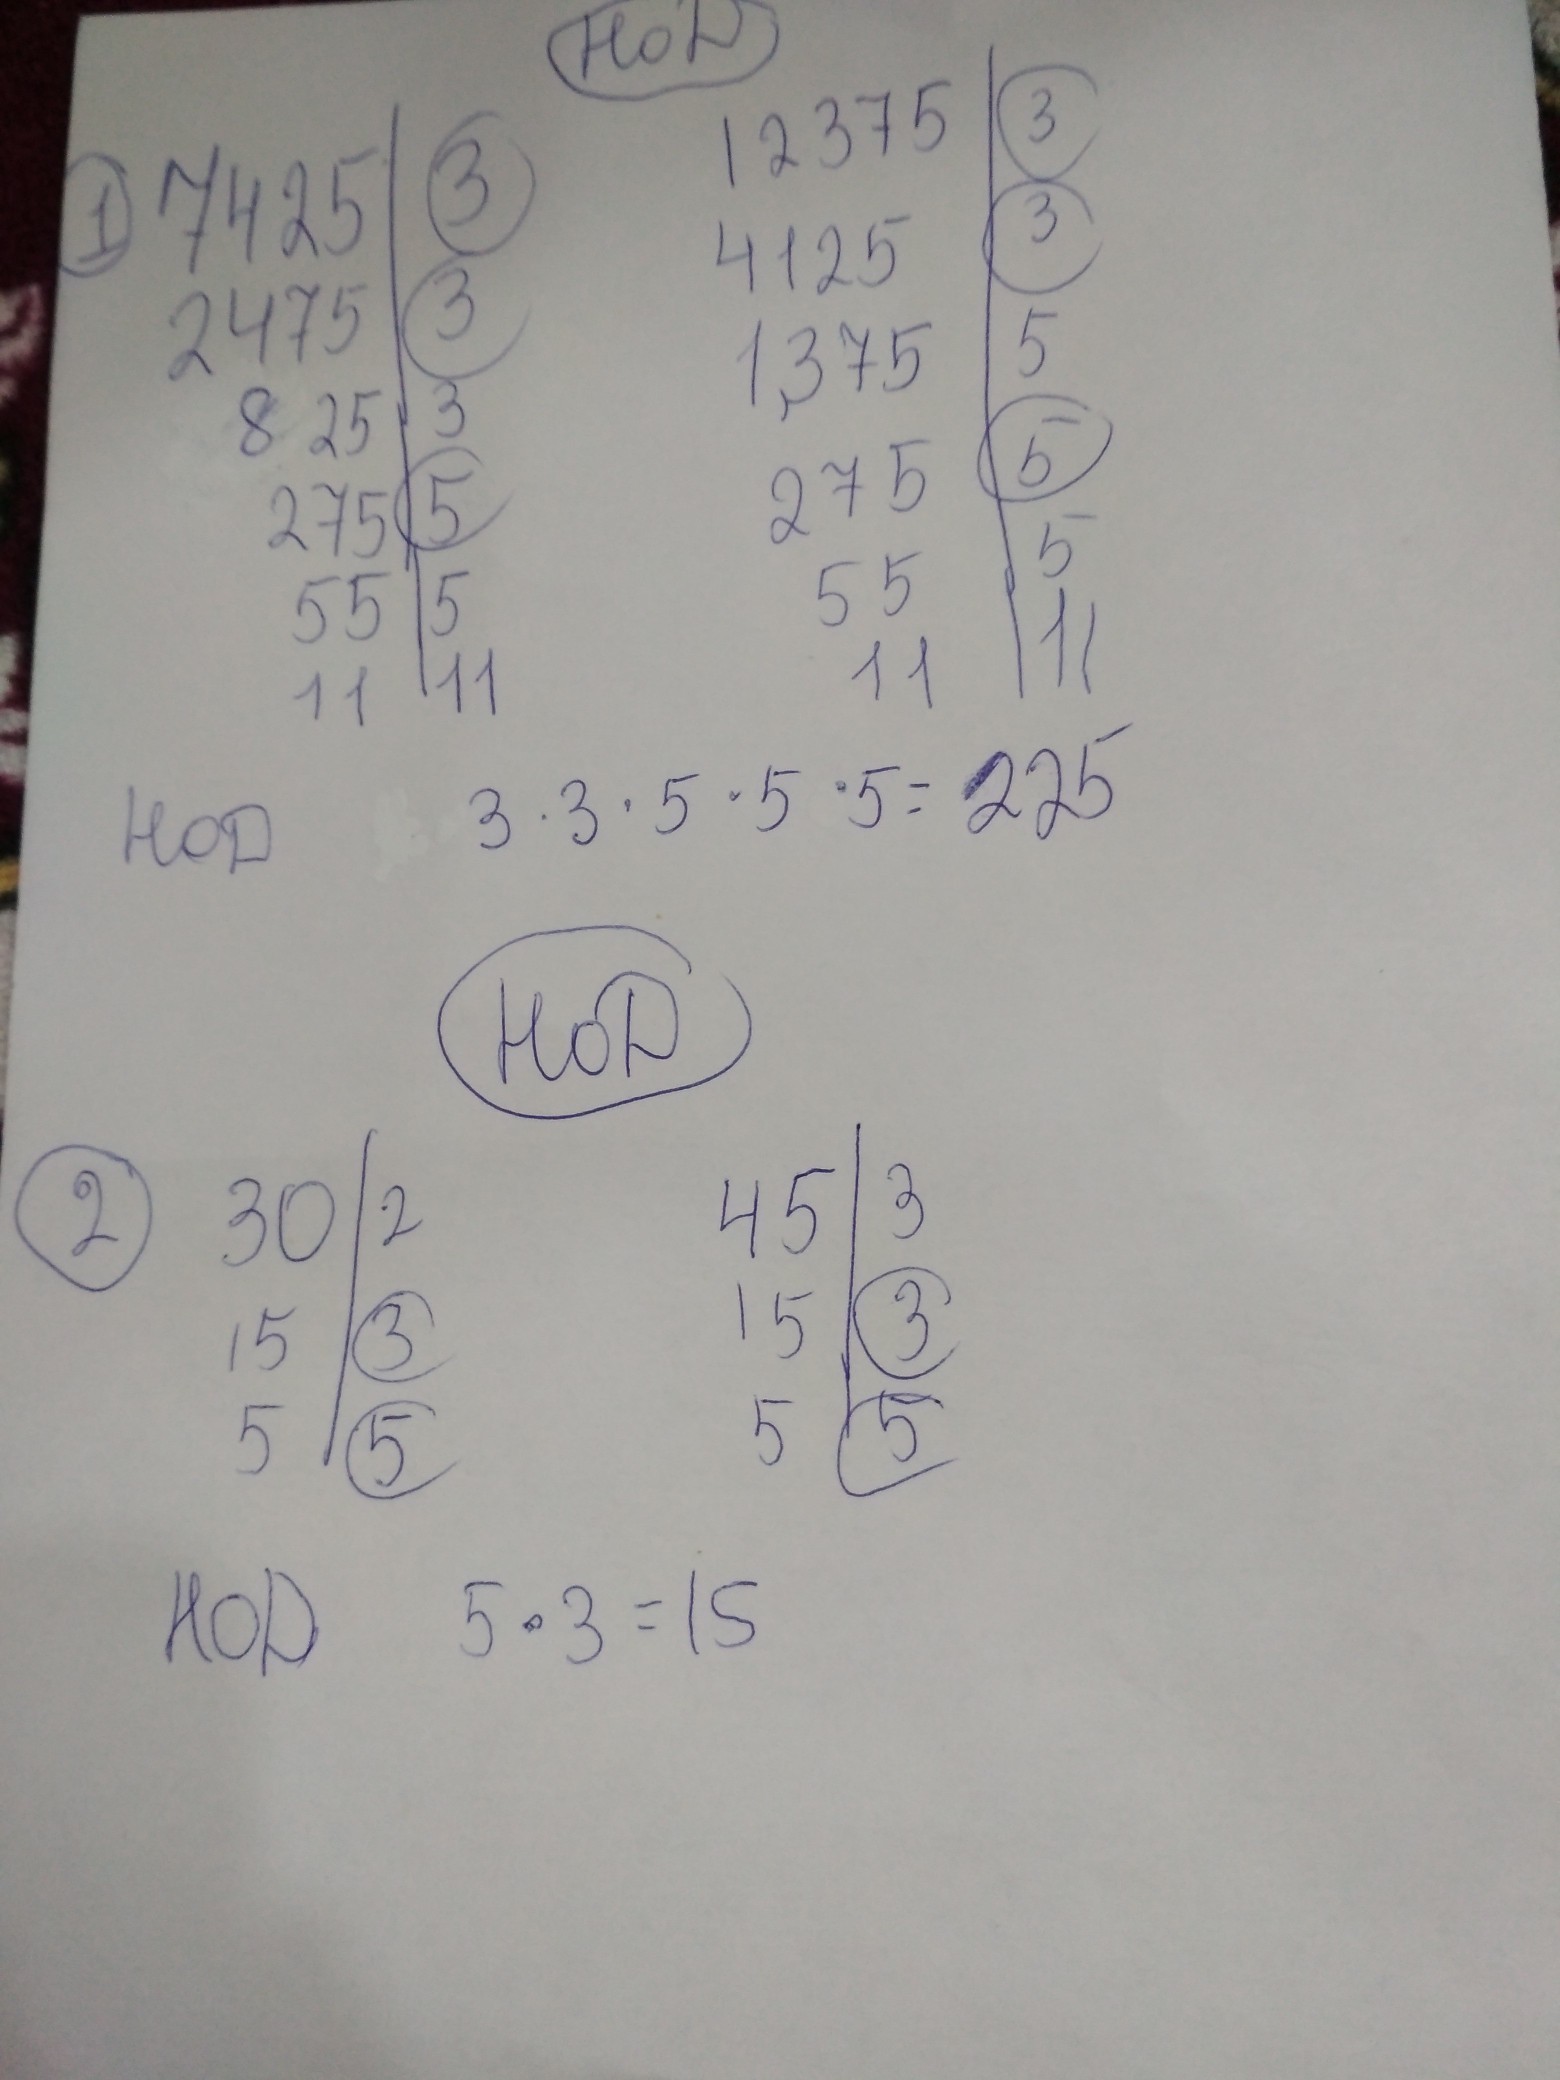 НОД
① 7425 | 3
2475 | 3
825 | 3
275 | 5
55 | 5
11 | 11
12375 | 3
4125 | 3
1375 | 5
275 | 5
55 | 5
11 | 11
НОД 3 · 3 · 5 · 5 · 5 = 225
НОД
② 30 | 2
15 | 3
5 | 5
45 | 3
15 | 3
5 | 5
НОД 5 · 3 = 15